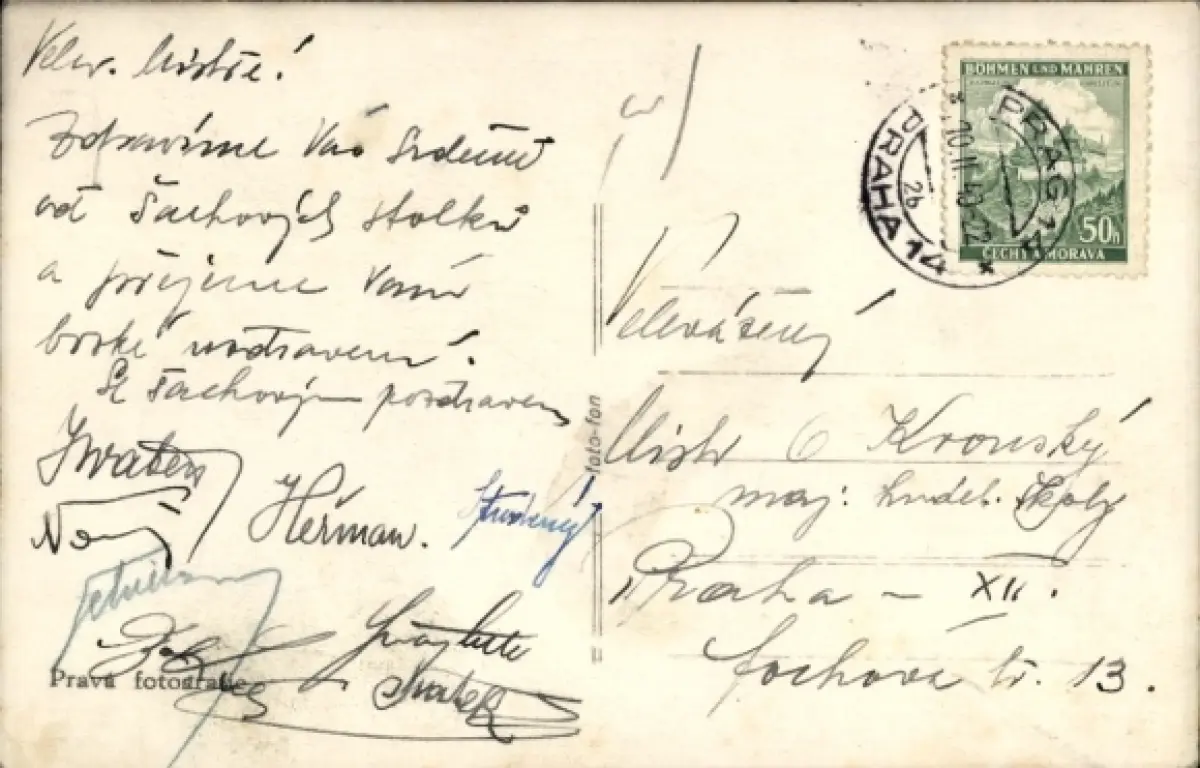 Velev. Mistře!
Zdravíme Vás srdečně
od šachových stolků
a přejeme Vám
brzké uzdravení.
Se šachovým pozdravem
Heřman.
Studený
Svatek
Pravá fotografie
foto-fon
BÖHMEN UND MÄHREN
50h
ČECHY A MORAVA
PRAG 14
PRAHA 14
2b
Velevážený
Mistr Kronský
maj. hudeb. školy
Praha - XII.
Fochova tř. 13.